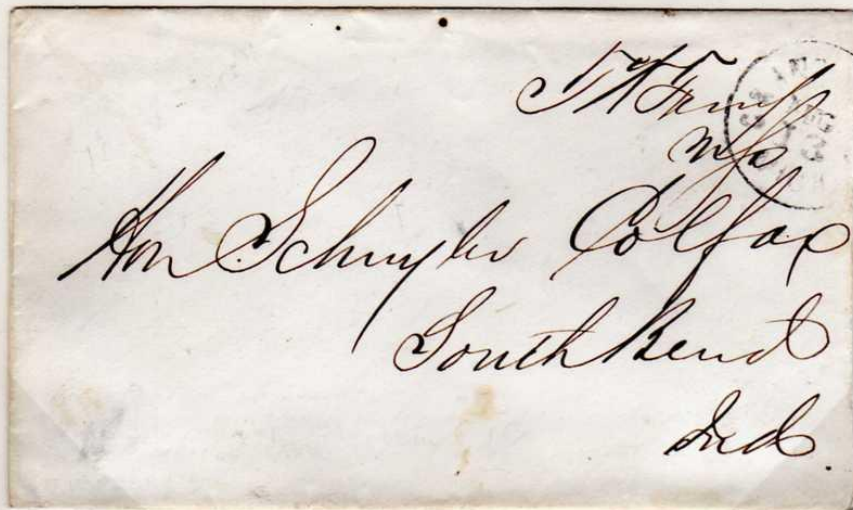 T W Ferry
M.C
Hon Schuyler Colfax
South Bend
Ind